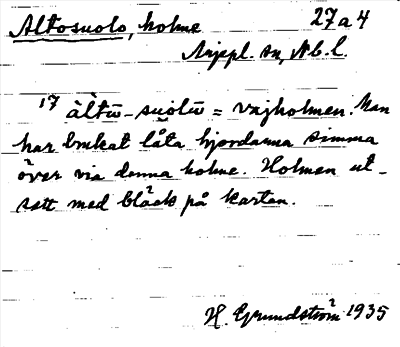 Altosuolo, holme 27a4
Arjepl. sn, Nb. l.
17 àltū-suolū = vajholmen. Man
har brukat låta hjordarna simma
över via denna holme. Holmen ut-
satt med bläck på kartan.
H. Grundström 1935